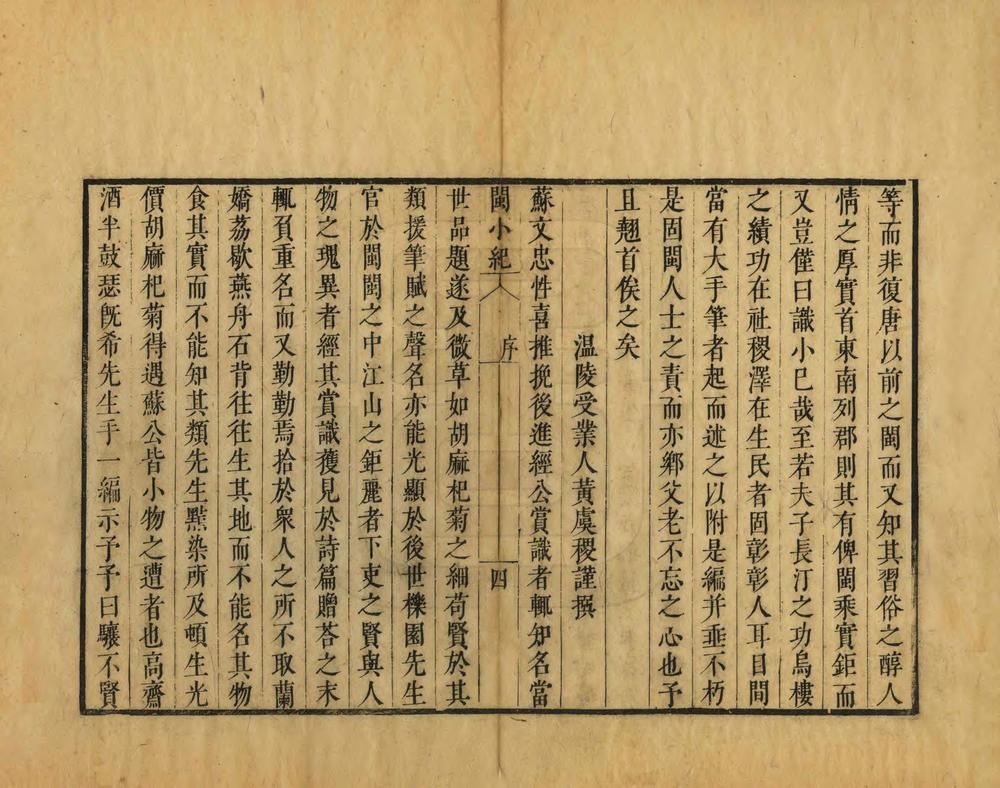 等而非復唐以前之閩而又知其習俗之醇人
情之厚實首東南列郡則其有俾閩乘實鉅而
又豈僅曰識小已哉至若夫子長汀之功烏樓
之績功在社稷澤在生民者固彰彰人耳目間
當有大手筆者起而述之以附是編并垂不朽
是固閩人士之責而亦鄉父老不忘之心也予
且翹首俟之矣
温陵受業人黃虞稷謹撰
蘇文忠性喜推挽後進經公賞識者輒知名當
閩小紀 序 四
世品題遂及微草如胡麻杞菊之細苟賢於其
類援筆賦之聲名亦能光顯於後世櫟園先生
官於閩閩之中江山之鉅麗者下吏之賢與人
物之瑰異者經其賞識獲見於詩篇贈荅之末
輒負重名而又勤勤焉拾於衆人之所不取蘭
嬌荔歇燕舟石背往往生其地而不能名其物
食其實而不能知其類先生㸃染所及頓生光
價胡麻杞菊得遇蘇公皆小物之遭者也高齋
酒半鼓瑟旣希先生手一編示予予曰驥不賢